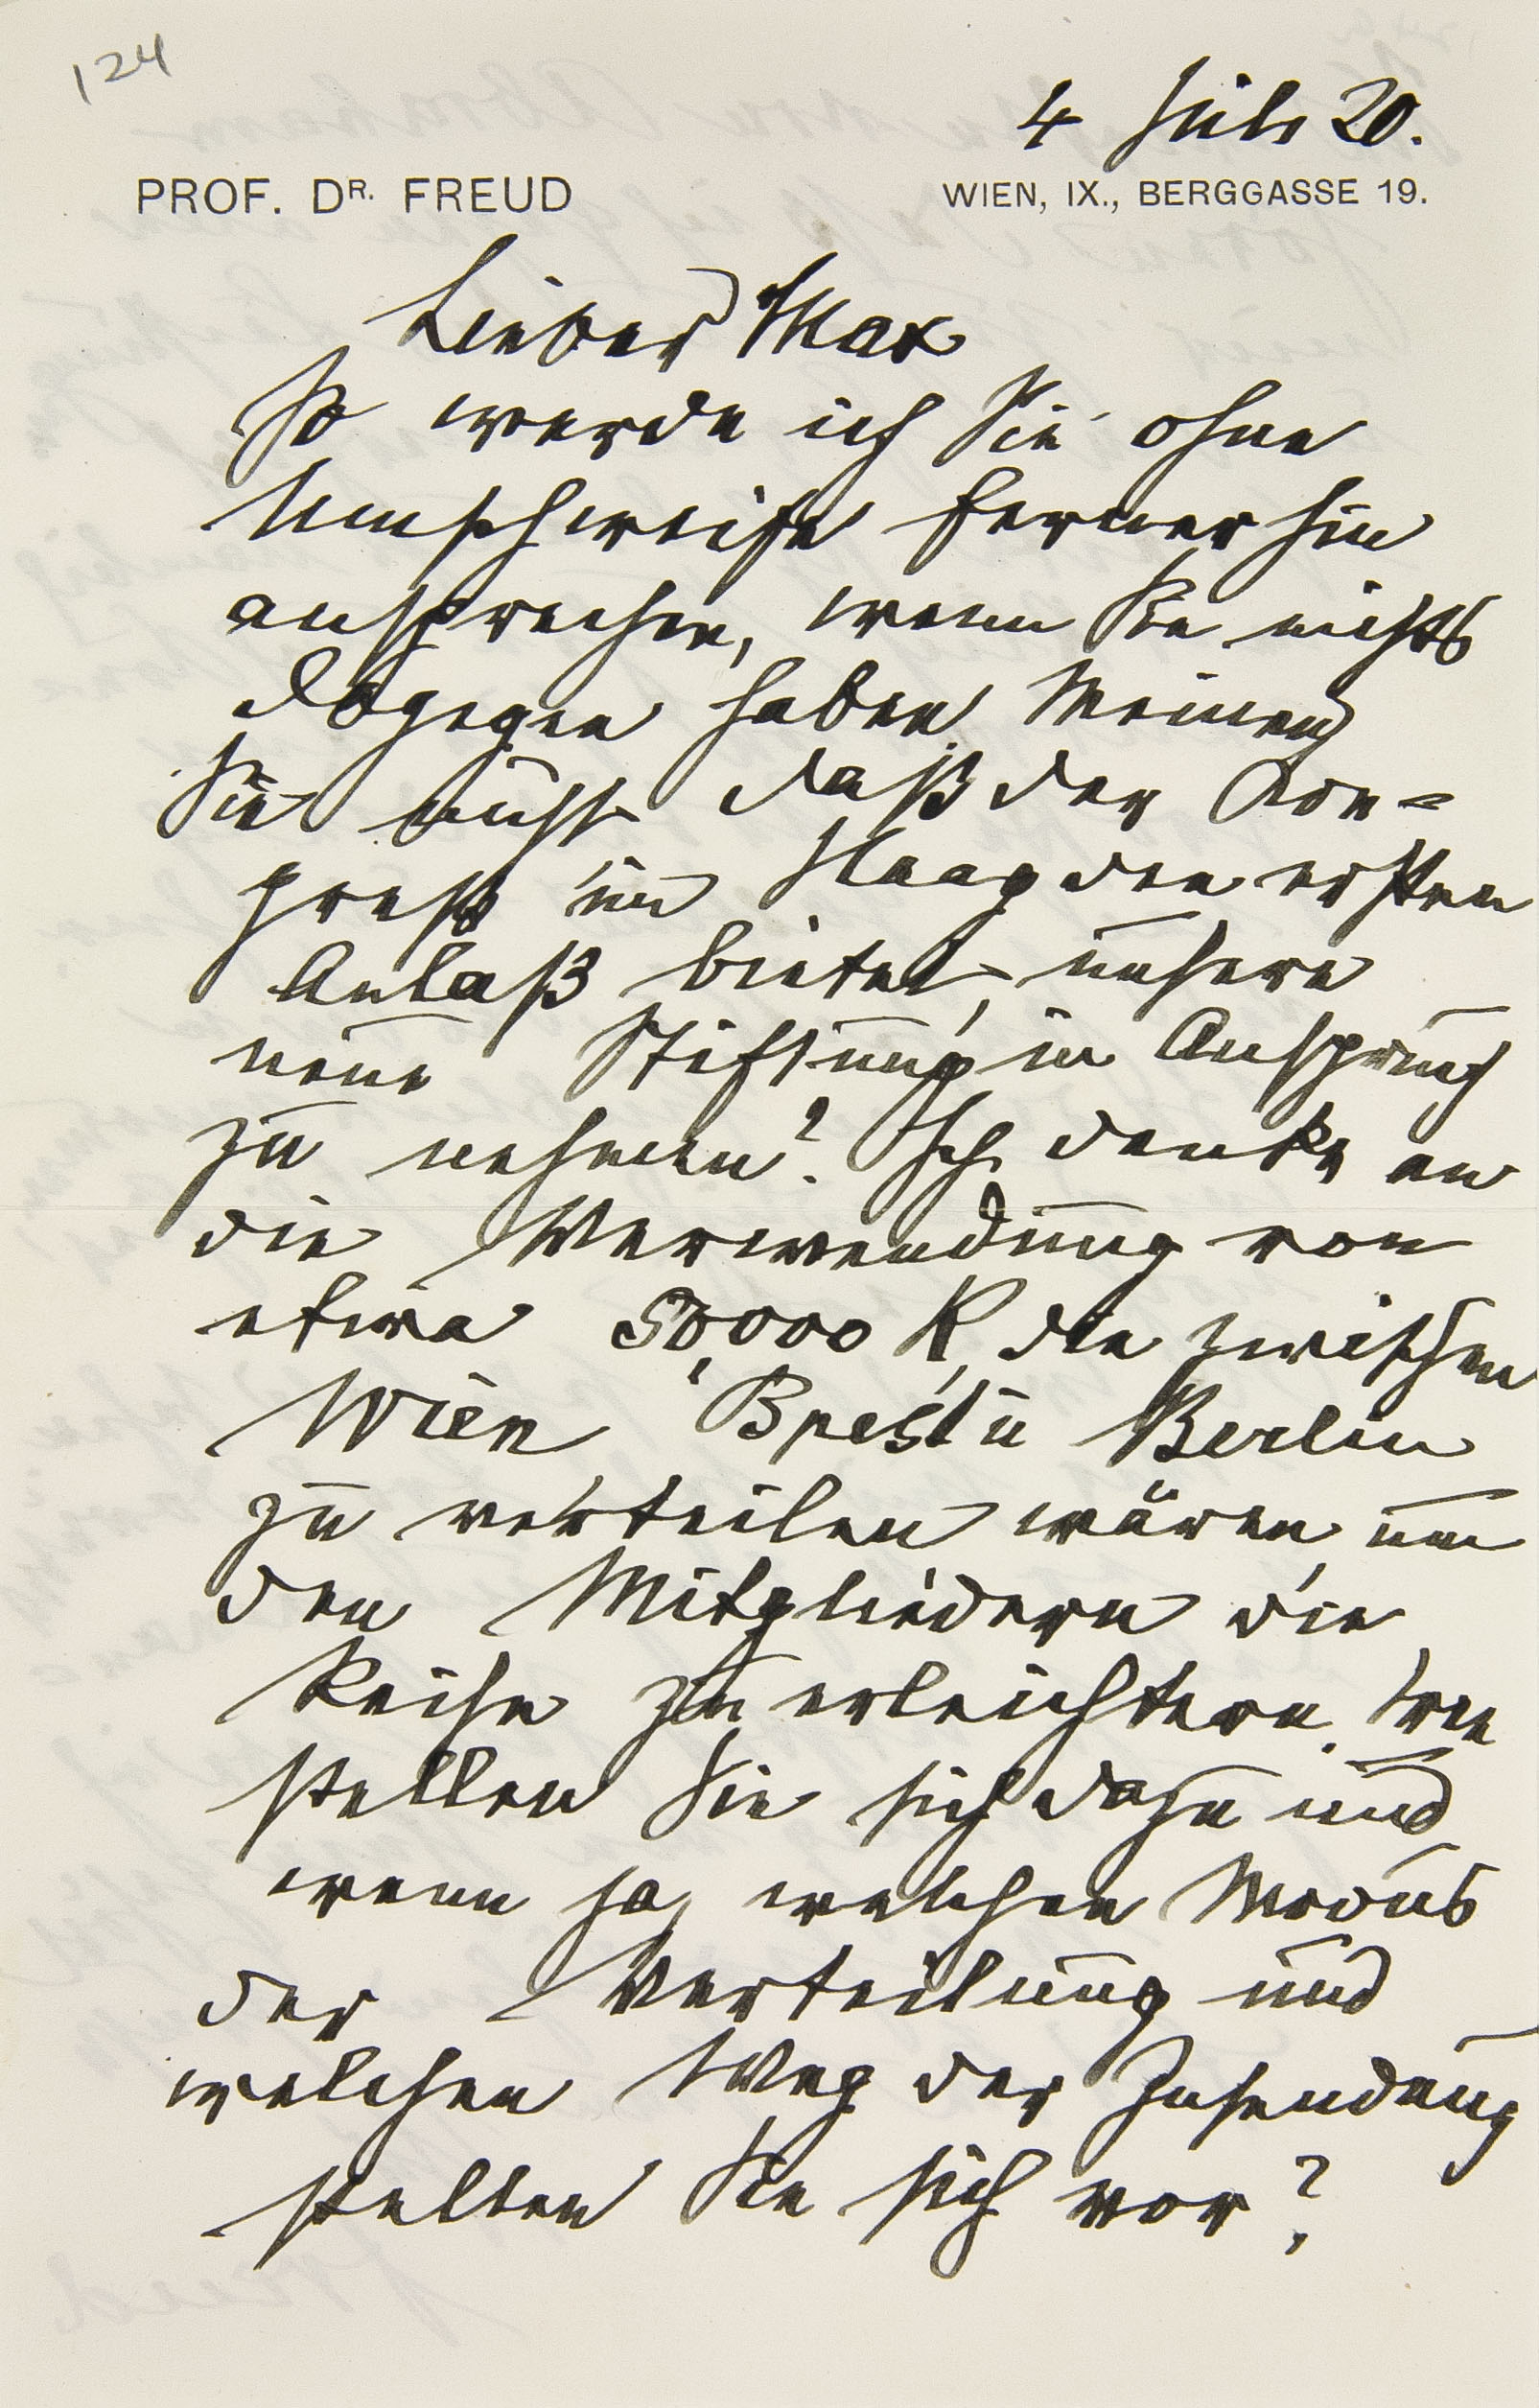 124
4 Juli 20.
PROF. DR. FREUD
WIEN, IX., BERGGASSE 19.
Lieber Max
So werde ich Sie ohne
Umschweife fernerhin
ansprechen, wenn Sie nichts
dagegen haben. Meinen
Sie nicht daß der Con-
greß im Haag den ersten
Anlaß bietet, unsere
neue Stiftung in Anspruch
zu nehmen? Ich denke an
die Verwendung von
etwa 50,000 K, die zwischen
Wien Bpest u Berlin
zu verteilen wären, um
den Mitgliedern die
Reise zu erleichtern. Wie
stellen Sie sich dazu und
wenn ja, welchen Modus
der Verteilung und
welchen Weg der Zusendung
stellen Sie sich vor?